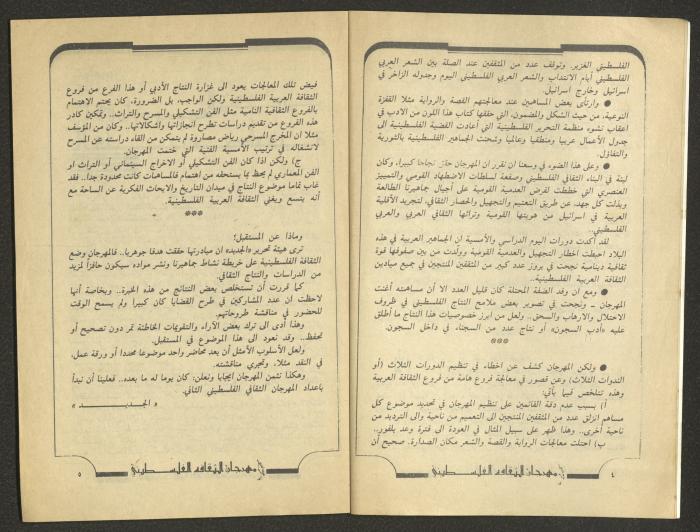 الفلسطيني الغزير. وتوقف عدد من المثقفين عند الصلة بين الشعر العربي
الفلسطيني أيام الانتداب والشعر العربي الفلسطيني اليوم وجدوله الزاخر في
اسرائيل وخارج اسرائيل.
● وارتأى بعض المساهمين عند معالجتهم القصة والرواية مثلا القفزة
النوعية، من حيث الشكل والمضمون، التي حققها كتاب هذا اللون من الادب في
اعقاب نشوء منظمة التحرير الفلسطينية التي أعادت القضية الفلسطينية الى
جدول الأعمال عربيا ومنطقيا وعالميا وشحنت الجماهير الفلسطينية بالثورية
والتفاؤل.
● وعلى هذا الضوء في وسعنا ان نقرر ان المهرجان حاز نجاحا كبيرا، وكان
لبنة في البناء الثقافي الفلسطيني وصفعة لسلطات الاضطهاد القومي والتمييز
العنصري التي خططت لفرض العدمية القومية على أجيال جماهيرنا الطالعة
وبذلت كل جهد عن طريق التعتيم والتجهيل والحصار الثقافي، لتجريد الأقلية
العربية في اسرائيل من هويتها القومية وتراثها الثقافي العربي والعربي
الفلسطيني..
لقد أكدت دورات اليوم الدراسي والأمسية ان الجماهير العربية في هذه
البلاد احبطت اخطار التجهيل والعدمية القومية وولّدت من بين صفوفها قوة
ثقافية دينامية نجحت في بروز عدد كبير من المثقفين المنتجين في جميع ميادين
الثقافة الفلسطينية..
● ومع ان وفد الضفة المحتلة كان قليل العدد الا أن مساهمته أغنت
المهرجان ـ ونجحت في تصوير بعض ملامح النتاج الفلسطيني في ظروف
الاحتلال والارهاب والسحق.. ولعل من ابرز خصوصيات هذا النتاج ما أطلق
عليه «أدب السجون» أو نتاج عدد من السجناء في داخل السجون.
***
● ولكن المهرجان كشف عن اخطاء في تنظيم الدورات الثلاث (أو
الندوات الثلاث) وعن قصور في معالجة فروع هامة من فروع الثقافة العربية
وهذه تتلخص فيما يأتي:
أ) بسبب عدم دقة القائمين على تنظيم المهرجان في تحديد موضوع كل
مساهم انزلق عدد من المثقفين المنتجين الى التعميم من ناحية والى الترديد من
ناحية أخرى.. وهذا ظهر على سبيل المثال في العودة الى فترة وعد بلفور..
ب) احتلت معالجات الرواية والقصة والشعر مكان الصدارة. صحيح أن
مهرجان الثقافة الفلسطيني
٤
فيض تلك المعالجات يعود الى غزارة النتاج الأدبي أو هذا الفرع من فروع
الثقافة العربية الفلسطينية ولكن الواجب، بل الضرورة، كان يحتم الاهتمام
بالفروع الثقافية النامية مثل الفن التشكيلي والمسرح والتراث.. وتمكين كادر
هذه الفروع من تقديم دراسات تطرح انجازاتها واشكالاتها.. وكان من المؤسف
مثلا ان المخرج المسرحي رياض مصاروة لم يتمكن من القاء دراسته عن المسرح
لانشغاله في ترتيب الأمسية الفنية التي ختمت المهرجان.
ج) ولكن اذا كان الفن التشكيلي أو الاخراج السينمائي أو التراث او
الفن المعماري لم يحظ بما يستحقه من اهتمام فالمساهمات كانت محدودة جدا.. فقد
غاب تماما موضوع النتاج في ميدان التاريخ والابحاث الفكرية عن الساحة مع
أنه يتسع ويغني الثقافة العربية الفلسطينية.
***
وماذا عن المستقبل؛
ترى هيئة تحرير «الجديد» ان مبادرتها حققت هدفا جوهريا.. فالمهرجان وضع
الثقافة الفلسطينية على خريطة نشاط جماهيرنا ونشر مواده سيكون حافزاً لمزيد
من الدراسات والنتاج الثقافي.
كما قررت أن تستخلص بعض النتائج من هذه الخبرة.. وبخاصة أنها
لاحظت ان عدد المشاركين في طرح القضايا كان كبيرا ولم يسمح الوقت
للحضور في مناقشة طروحاتهم.
وهذا أدى الى ترك بعض الآراء والتقويمات الخاطئة تمر دون تصحيح أو
تحفظ.. وقد نعود الى هذا الموضوع في المستقبل.
ولعل الأسلوب الأمثل أن يعد محاضر واحد موضوعا محددا أو ورقة عمل،
في النقد مثلا، وتجري مناقشته.
وهكذا نثمن المهرجان ايجابيا ونعلن: كان يوما له ما بعده.. فعلينا أن نبدأ
باعداد المهرجان الثقافي الفلسطيني الثاني.
« الجديـــــــــد »
مهرجان الثقافة الفلسطيني
٥